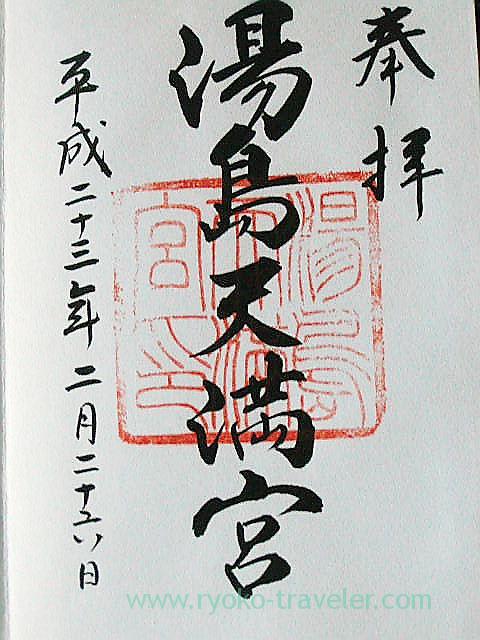 奉拝
湯島天満宮
湯島天満宮印
平成二十三年二月二十六日
www.ryoko-traveler.com